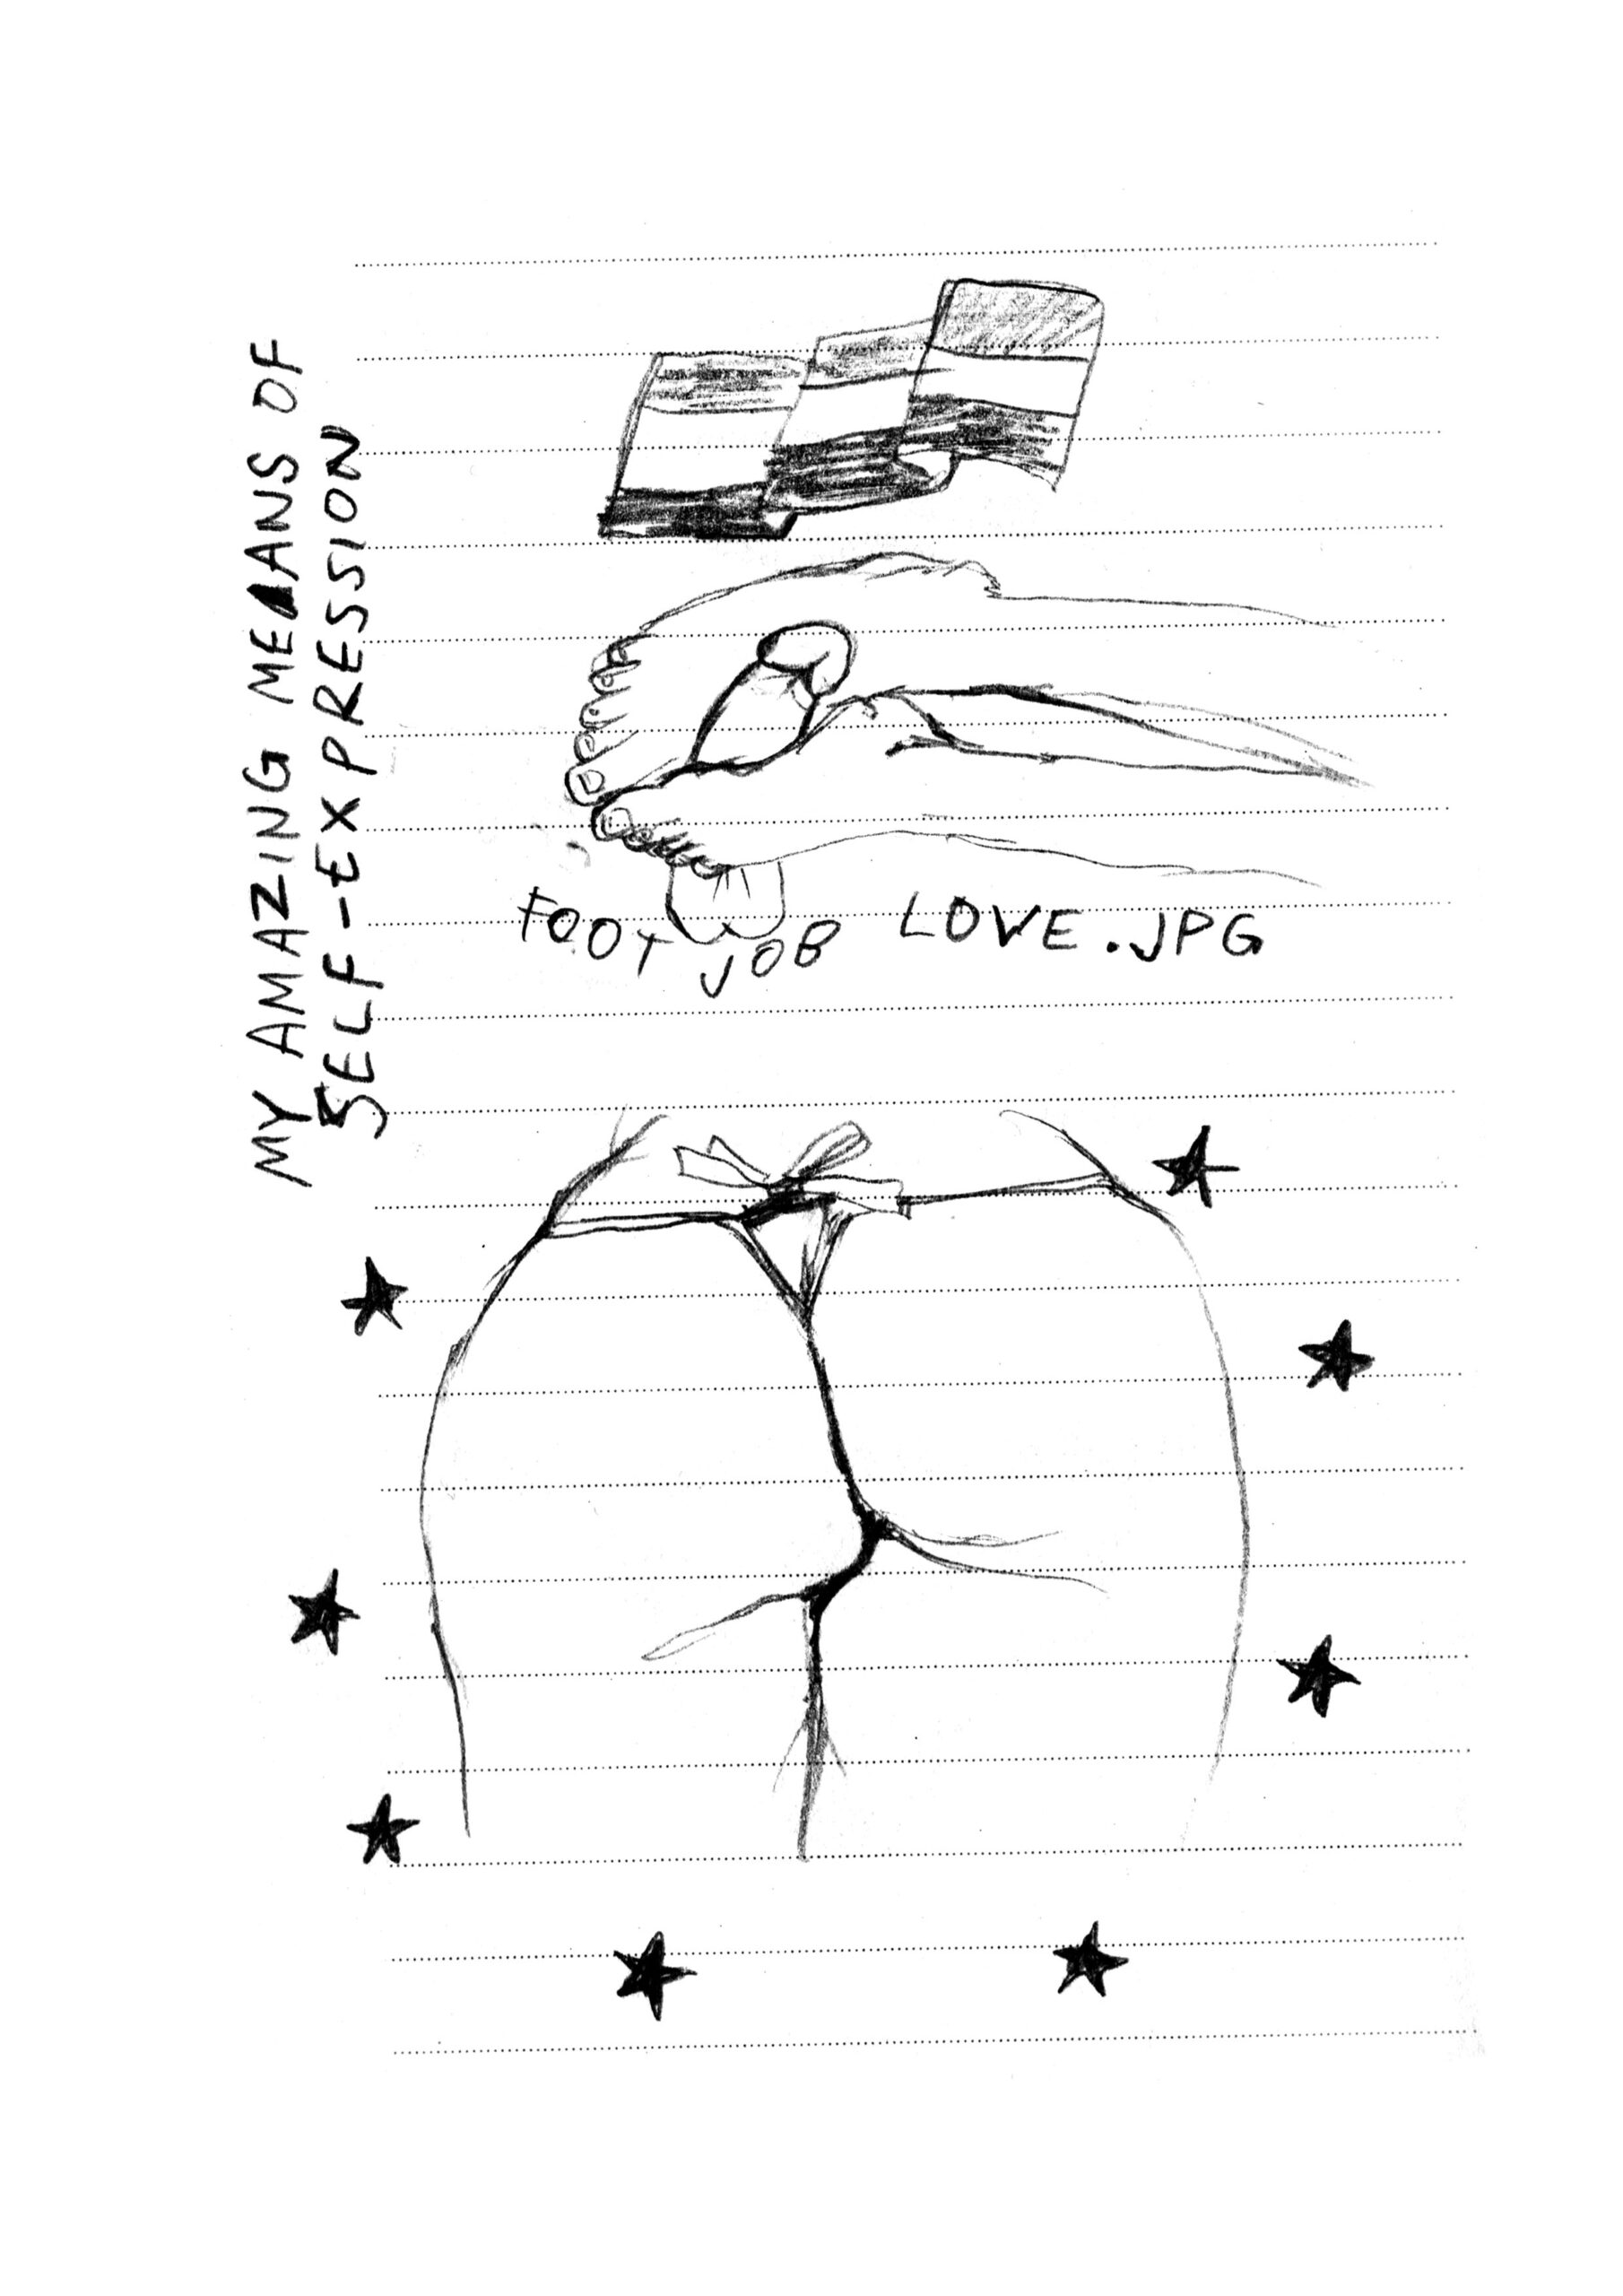 MY AMAZING MEANS OF
SELF-EXPRESSION
FOOT JOB LOVE.JPG